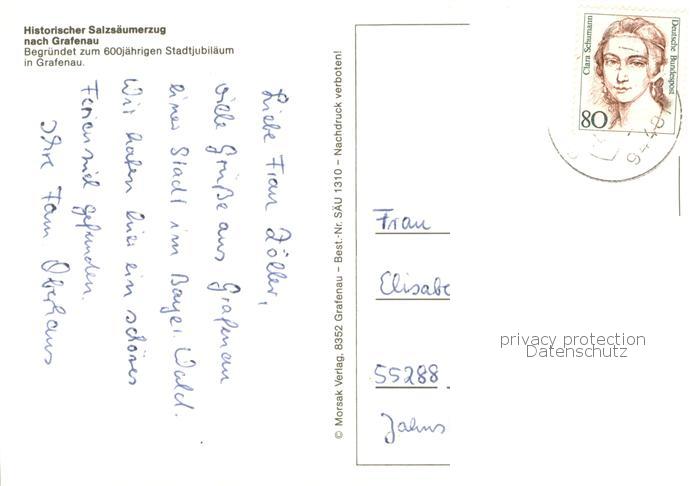 Historischer Salzsäumerzug
nach Grafenau
Begründet zum 600jährigen Stadtjubiläum
in Grafenau.
Liebe Frau Zöller,
viele Grüße aus Grafenau
einer Stadt im Bayer. Wald.
Wir haben hier ein schönes
Feriensid gefunden.
Ihre Fam Oberhaus
© Morsak Verlag, 8352 Grafenau – Best.-Nr. SÄU 1310 – Nachdruck verboten!
Clara Schumann
Deutsche Bundespost
80
9448
Frau
Elisabe
55288
Jahns
privacy protection
Datenschutz